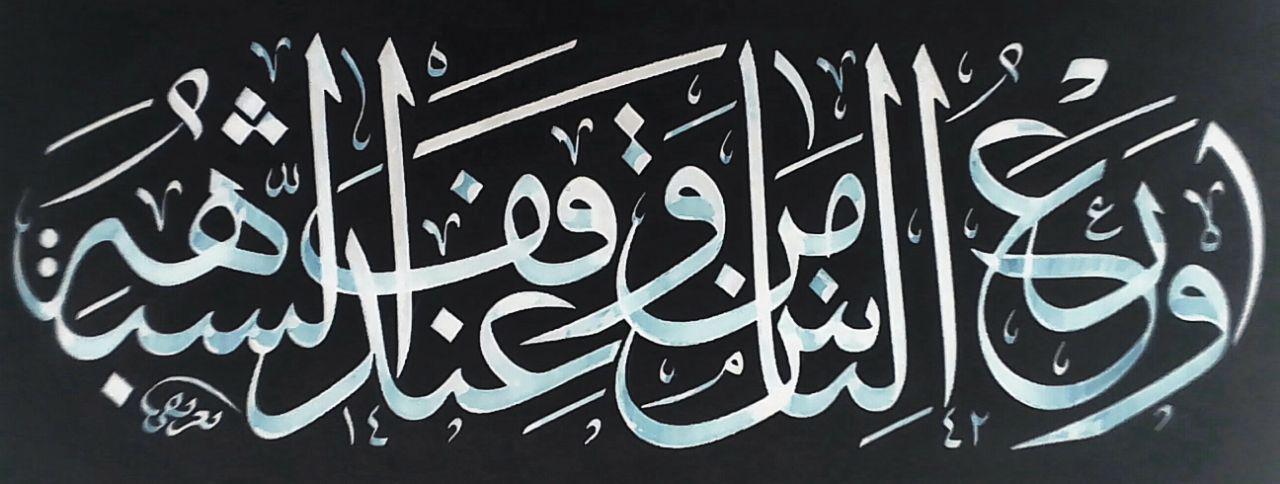 اورع الناس من وقف عند الشبهة
١٤٤٢